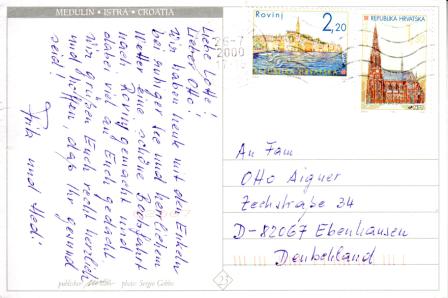 MEDULIN • ISTRA • CROATIA
Liebe Lotte!
Lieber Otto!
Wir haben heute mit den Enkeln
bei ruhiger See und herrlichem
Wetter eine schöne Bootsfahrt
nach Rovinj gemacht und
dabei viel an Euch gedacht.
Wir grüßen Euch recht herzlich
und hoffen, daß Ihr gesund
seid!
Fritz und Hedi
Rovinj
2,20
REPUBLIKA HRVATSKA
2000
An Fam
Otto Aigner
Zechstraße 34
D-82067 Ebenhausen
Deutschland
publisher
photo: Sergio Gobbo
23